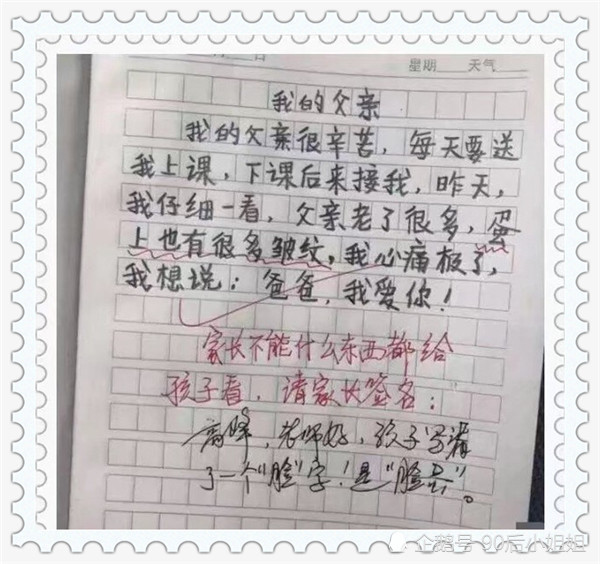 日
星期 天气
我的父亲
我的父亲很辛苦，每天要送
我上课，下课后来接我，昨天，
我仔细一看，父亲老了很多，蛋
上也有很多皱纹，我心痛极了，
我想说：爸爸，我爱你！
家长不能什么东西都给
孩子看，请家长签名：
高峰，老师好，孩子写漏
了一个"脸"字！是"脸蛋"。
企鹅号 90后小姐姐